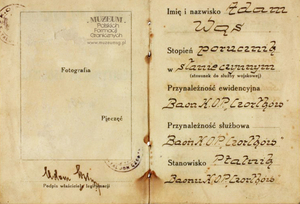 „MUZEUM"
Polskich
Formacji
Granicznych
www.muzeumsg.pl
Fotografia
Pieczęć
Podpis właściciela legitymacji
Imię i nazwisko Adam
Wąs
Stopień porucznik
w st. nieczynnym
(stosunek do służby wojskowej)
Przynależność ewidencyjna
Baon K.O.P. „Czortków"
Przynależność służbowa
Baon K.O.P. „Czortków"
Stanowisko Płatnik
Baonu K.O.P. „Czortków"